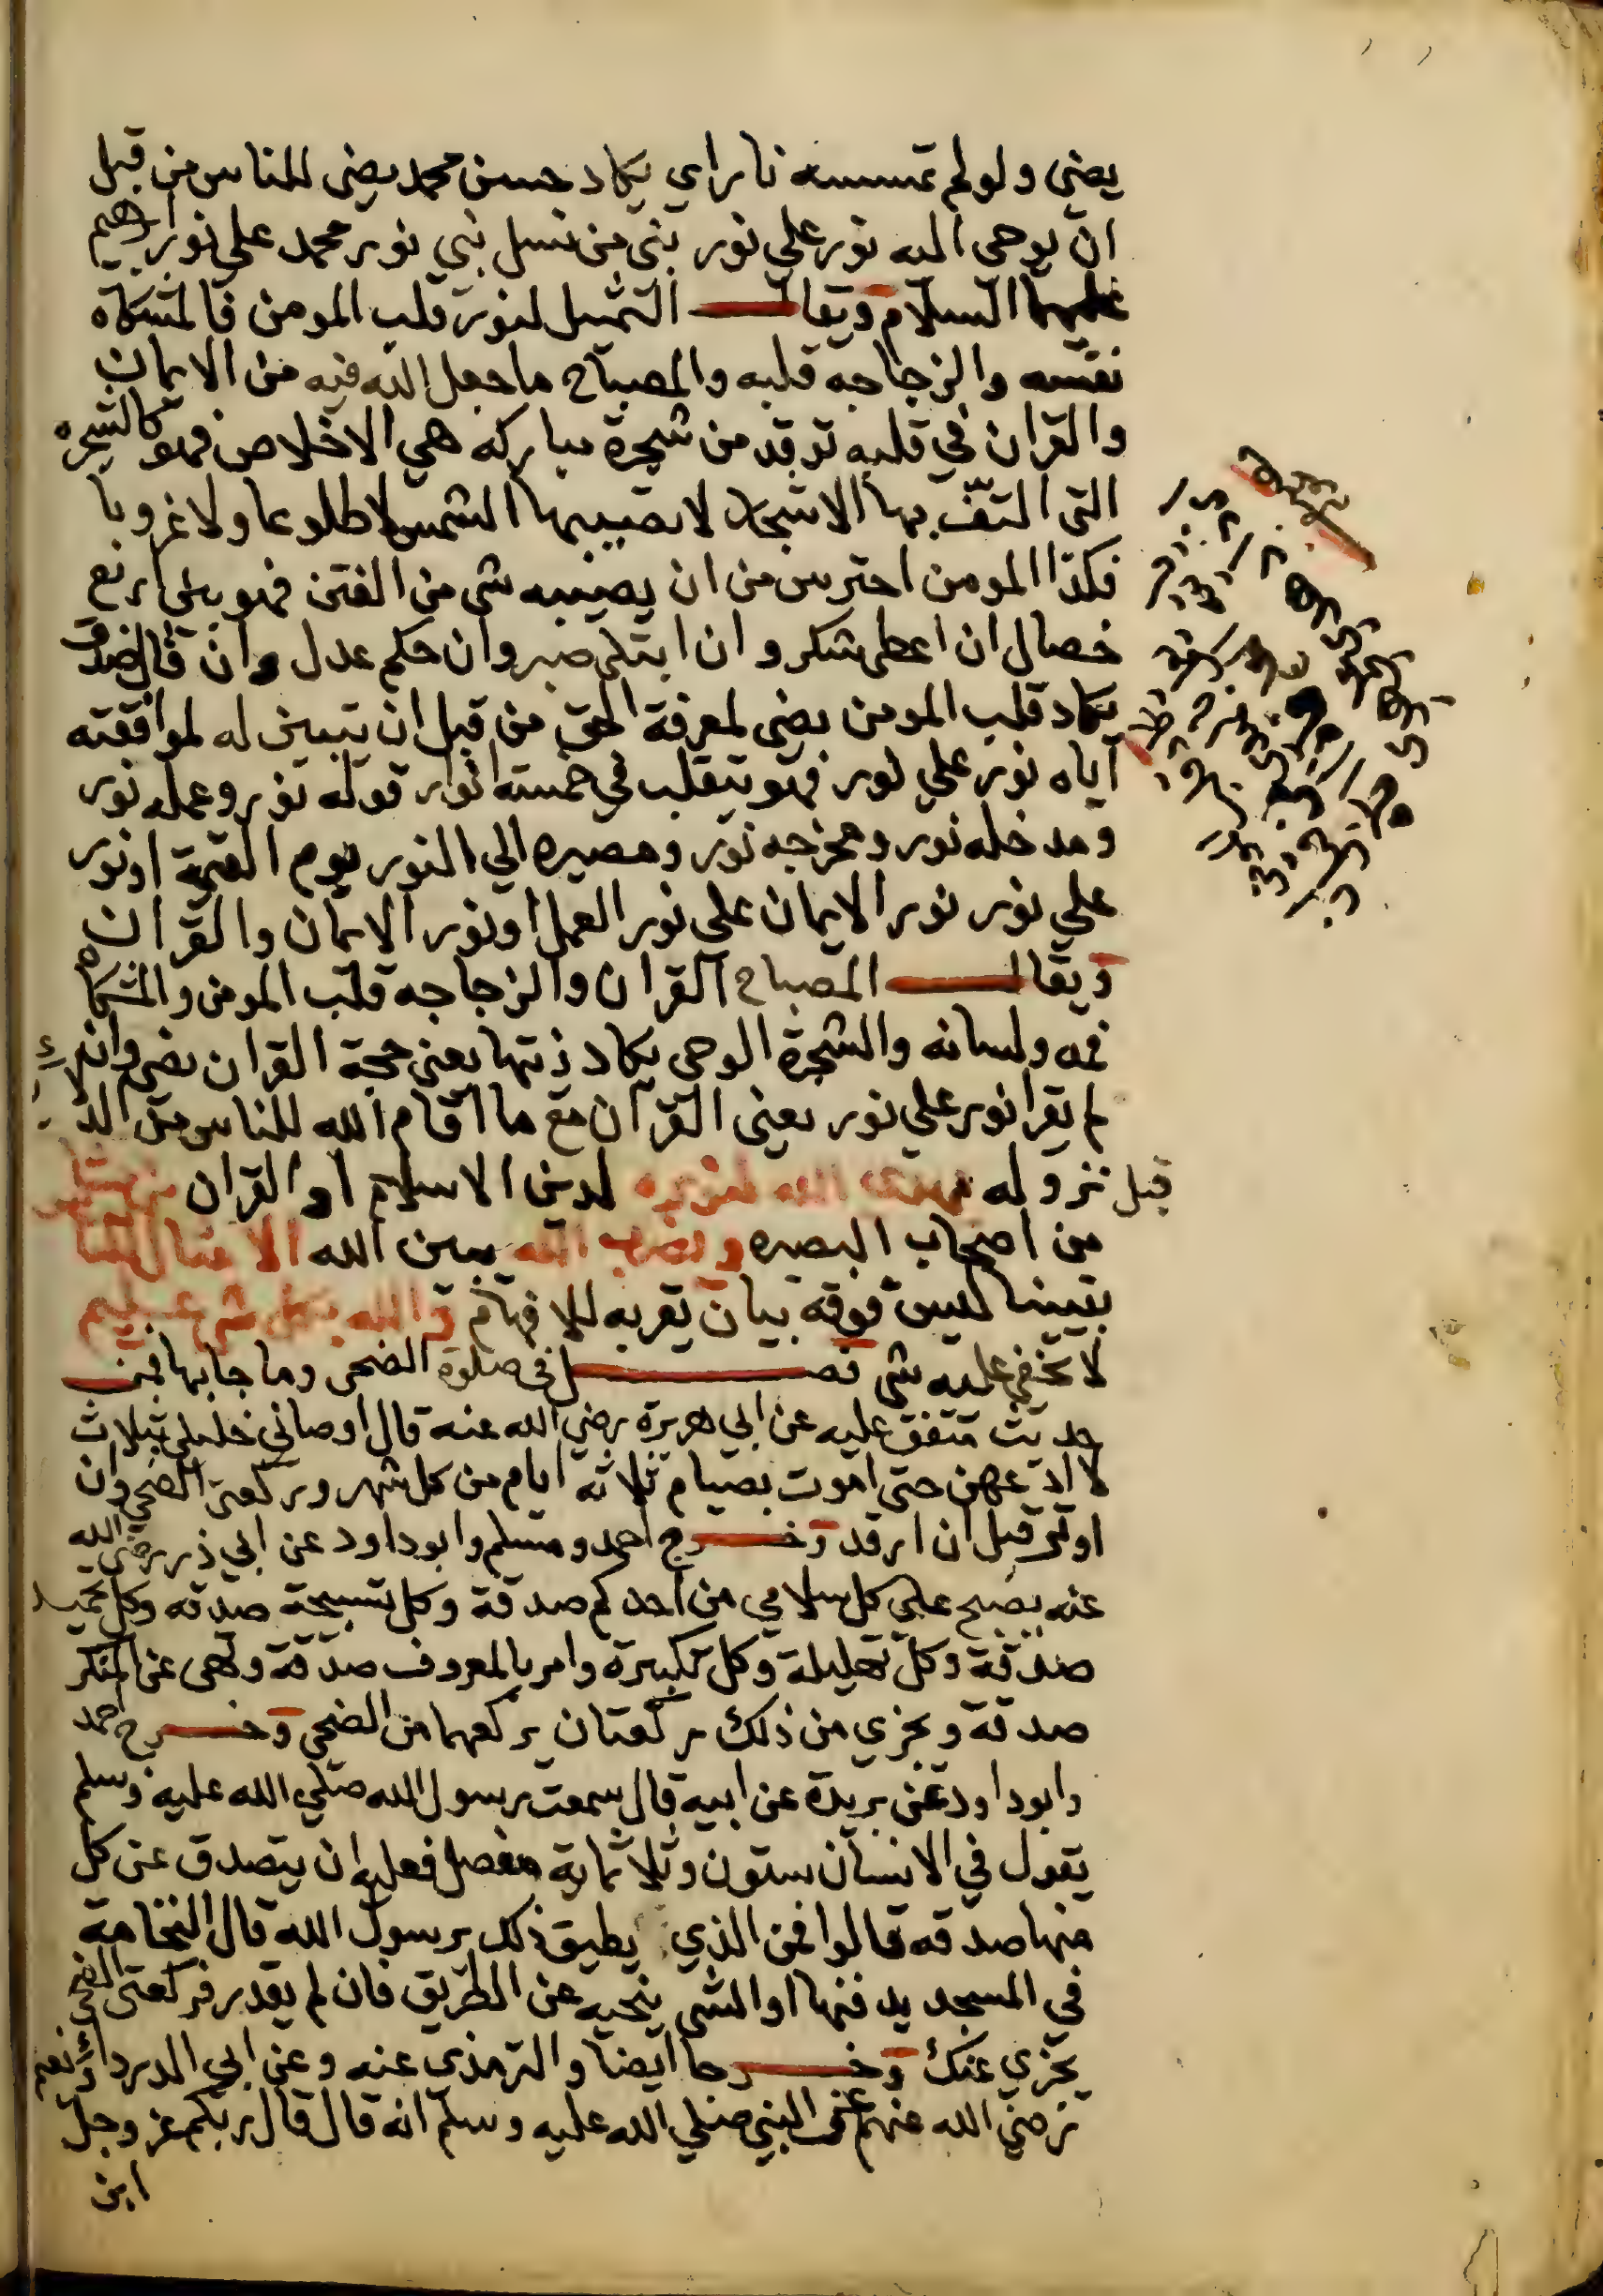 يضي ولو لم تمسسه نار اي يكاد حسن محمد يضي للناس من قبل
ان يوحى اليه نور على نور نبي من نسل نبي نور محمد على نور ابراهيم
عليهما السلام ويقال التمثيل لنور قلب المومن فالمشكاة
نفسه والزجاجه قلبه والمصباح ما جعل الله فيه من الايمان
والقران في قلبه توقد من شجرة مباركه هي الاخلاص فهو كالشجره
التي التفّ بها الاشجار لا تصيبها الشمس لا طلوعا ولا غروبا
فكذا المومن احترس من ان يصيبه شي من الفتن فهو بين اربع
خصال ان اعطى شكر و ان ابتلى صبر وان حكم عدل وان قال صدق
يكاد قلب المومن يضي لمعرفة الحق من قبل ان يتبين له لموافقته
اياه نور على نور فهو يتقلب في خمسة انوار قوله نور وعمله نور
ومدخله نور ومخرجه نور ومصيره الي النور يوم القيمة او نور
علي نور نور الايمان على نور العمل او نور الايمان والقران
ويقال المصباح القران والزجاجه قلب المومن والمشكاه
فمه ولسانه والشجرة الوحي يكاد زيتها يعني حجة القران يضي وان
لم يقرا نور علي نور يعني القران مع ما اقام الله للناس من الدلائل
قبل نزوله يهدى الله لنوره لدين الاسلام او القران من يشا
من اصحاب البصيره ويضرب الله يبين الله الامثال للناس
تبيينا ليس فوقه بيان يقربه للافهام والله بكل شي عليم
لا يخفى عليه شي فصل في صلوة الضحى وما جا بها فمن
حديث متفق عليه عن ابي هريرة رضي الله عنه قال اوصاني خليلي بثلاث
لا ادعهن حتى اموت بصيام ثلاثه ايام من كل شهر وركعتي الضحى وان
اوتر قبل ان ارقد وخرج احمد ومسلم وابو داود عن ابي ذر رضي الله
عنه يصبح علي كل سلامي من احدكم صدقة وكل تسبيحة صدقه وكل تحميد
صدقة وكل تهليلة وكل تكبيرة وامر بالمعروف صدقة ونهى عن المنكر
صدقة ويجزي من ذلك ركعتان يركعهما من الضحى وخرج احمد
وابو داود عن بريدة عن ابيه قال سمعت رسول الله صلي الله عليه وسلم
يقول في الانسان ستون وثلاثماية مفصل فعليه ان يتصدق عن كل
منها صدقه قالوا فمن الذي يطيق ذلك يرسول الله قال النخامة
في المسجد يدفنها او الشي ينحيه عن الطريق فان لم يقدر فركعتى الضحى
يجزي عنك وخرجا ايضا والترمذي عنه وعن ابي الدرداء ونعيم
رضي الله عنهم عن النبي صلي الله عليه وسلم انه قال قال ربكم عز وجل
ابن